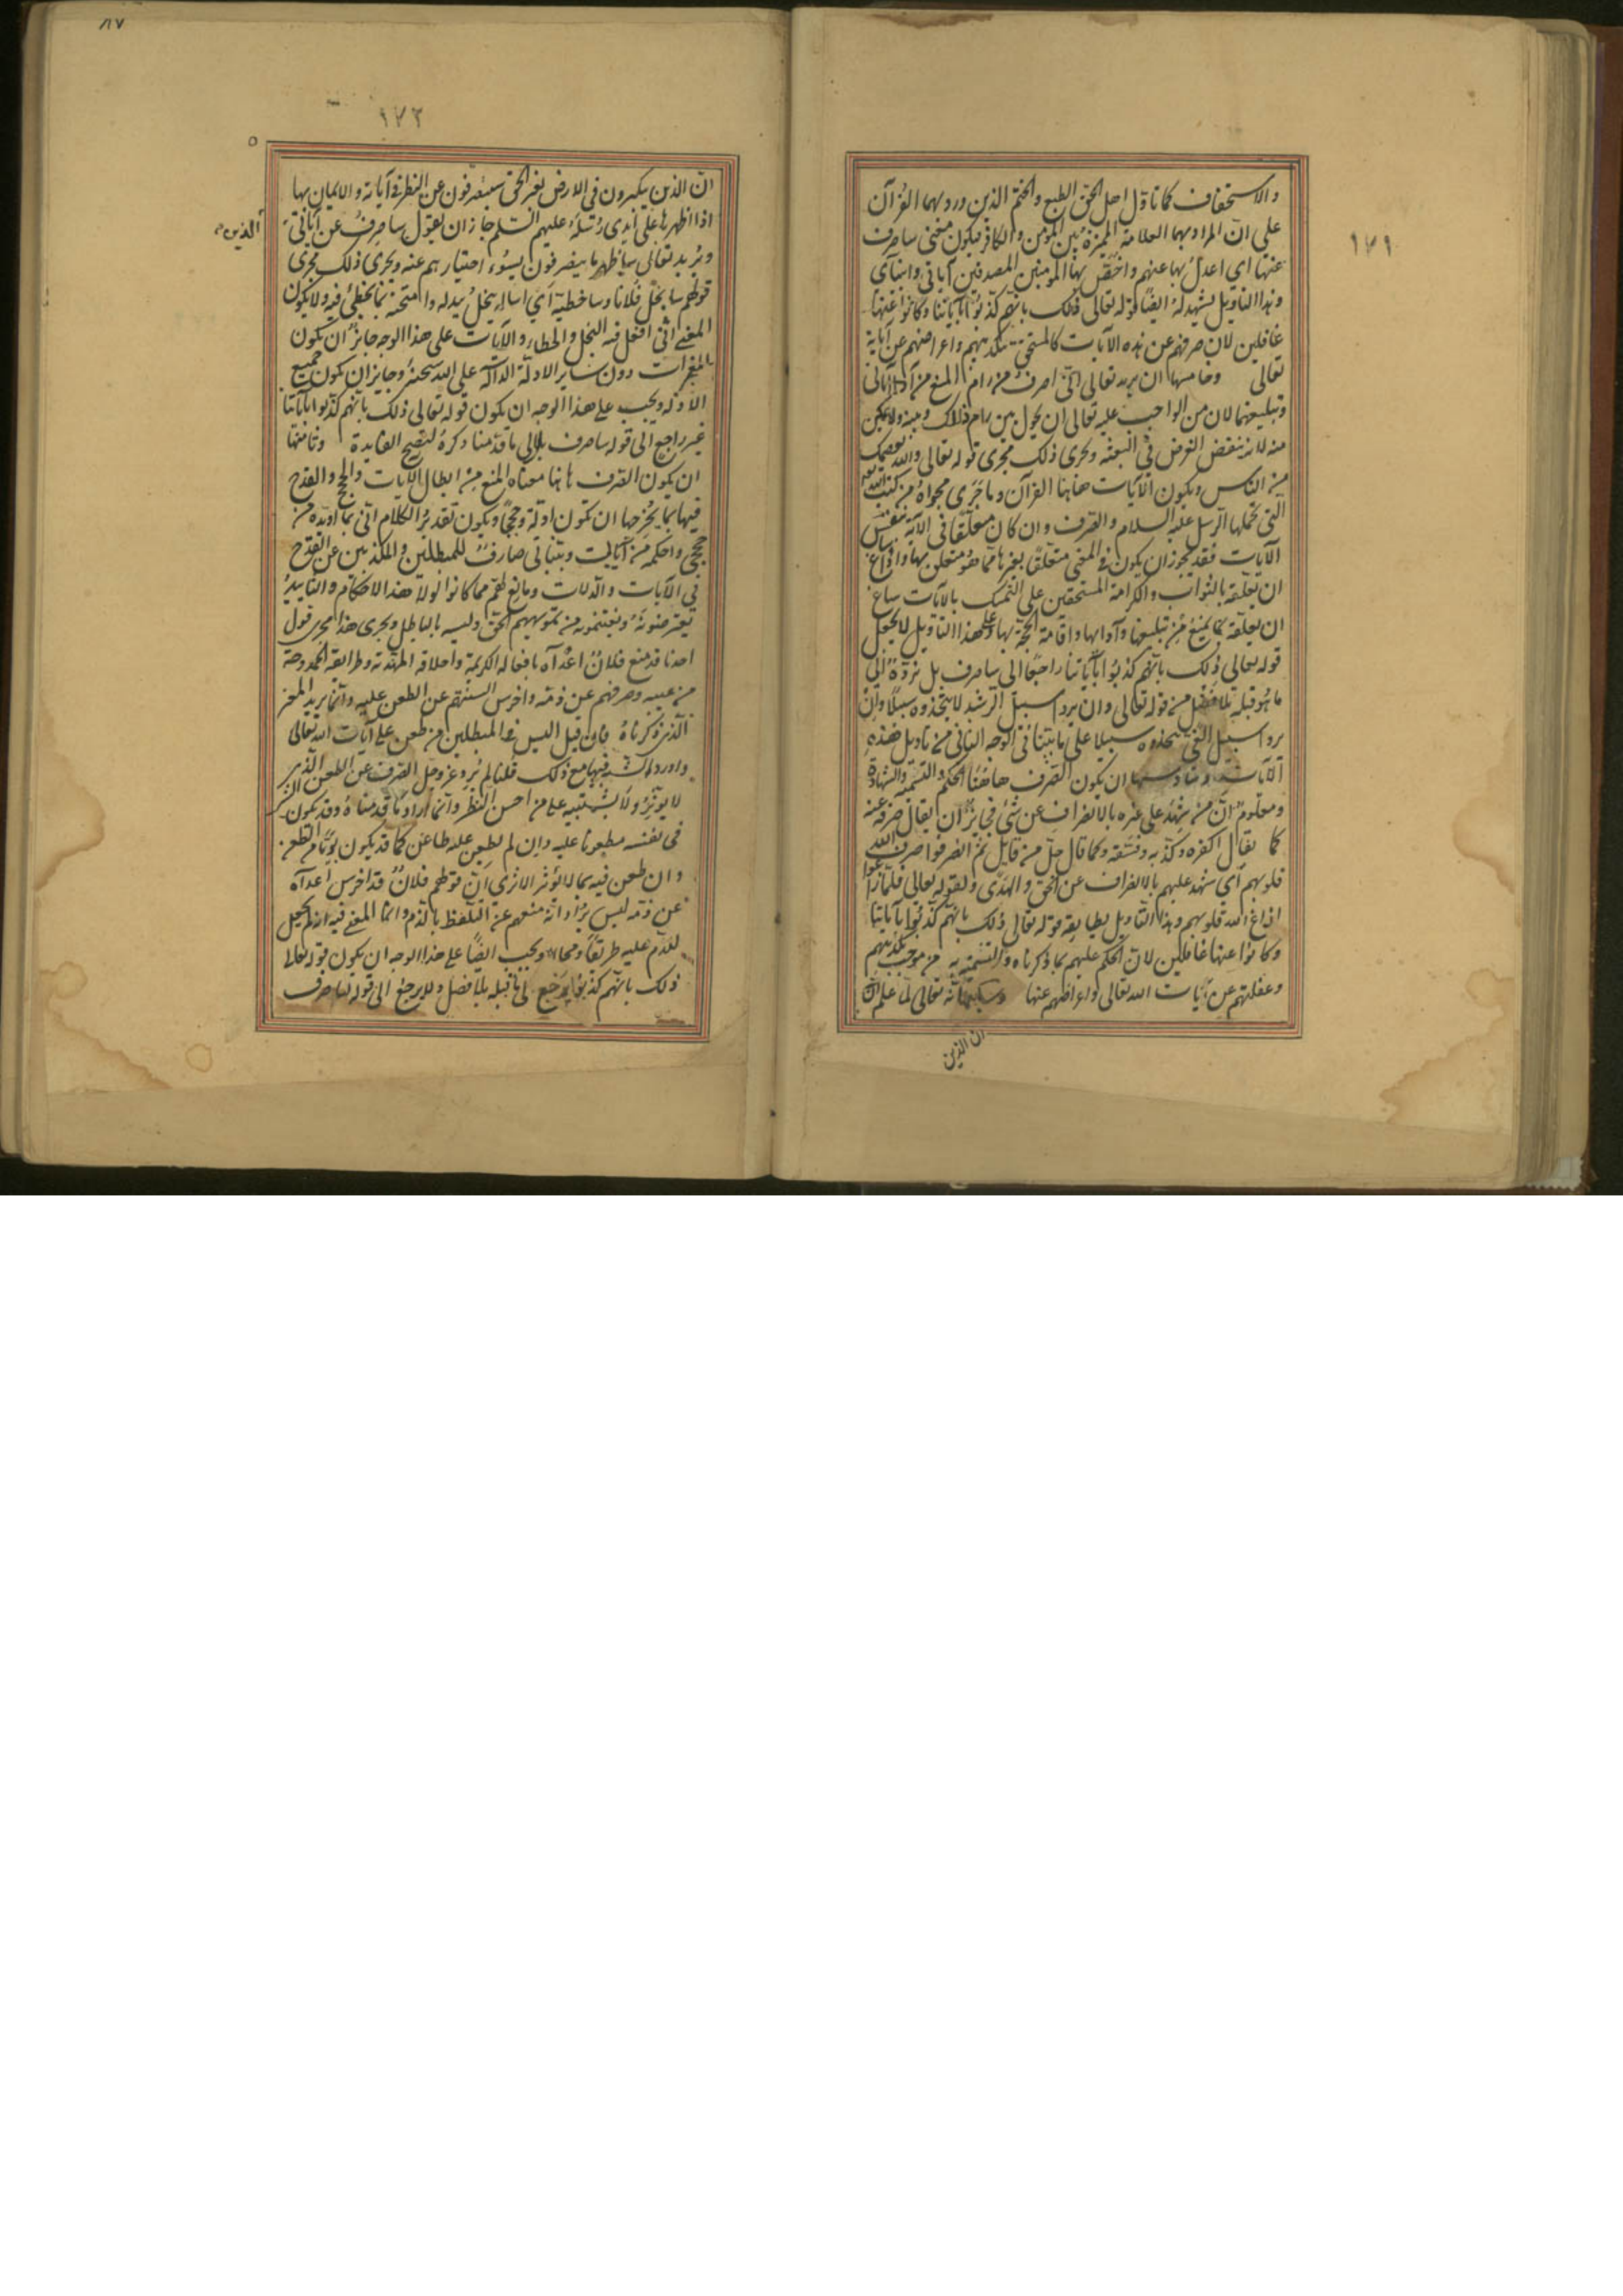 ١٧١
والاستخفاف كما تأول اهل الحق الطبع والختم الذين ورد بهما القرآن
على ان المراد بهما العلامة المميزة بين المؤمن والكافر فيكون معنى ساصرف
عنها اي اعدل بها عنهم واخص بها المومنين المصدقين آياتي وانبيآي
وهذا التاويل يشهد له ايضا قوله تعالى ذلك بانهم كذبوا بآياتنا وكانوا عنها
غافلين لان صرفهم عن هذه الآيات كالمستحق بتكذيبهم واعراضهم عن آياته
تعالى وخامسها ان يريد تعالى انى اصرف من رام المنع من أداء آياتى
وتبليغها لان من الواجب عليه تعالى ان يحول بين رام ذلك وبينه ولا يمكن
منه لانه ينقض الغرض فى البعثة ويجرى ذلك مجرى قوله تعالى والله يعصمك
من الناس ويكون الآيات هاهنا القرآن وما جرى مجراه من كتب الله
التى تحملها الرسل عليه السلام والصرف وان كان متعلقا فى الآية بنفس
الآيات فقد يجوز ان يكون فى المعنى متعلق بغيرها مما هو متعلق بها واذا ساغ
ان يعلقه بالثواب والكرامة المستحقين على التمسك بالآيات ساغ
ان يعلقه بما يمنع من تبليغها وادائها واقامة الحجة بها وعلى هذا التاويل لا يجعل
قوله تعالى ذلك بانهم كذبوا بآياتنا راجعا الى ساصرف بل نرده الى
ما هو قبله بلا فصل من قوله تعالى وان يروا سبيل الرشد لا يتخذوه سبيلا وان
يروا سبيل الغى يتخذوه سبيلا على ما بينا فى الوجه الثانى من تاويل هذه
الآيات وسادسها ان يكون الصرف هاهنا الحكم والتسمية والشهادة
ومعلوم ان من شهد على غيره بالانصراف عن شئ فجائز ان يقال صرفه عنه
كما يقال اكفره وكذبه وفسقه وكما قال جل من قايل ثم انصرفوا صرف الله
قلوبهم اي شهد عليهم بالانصراف عن الحق والهدى ولقوله تعالى فلما زاغوا
ازاغ الله قلوبهم وهذا التاويل يطابقه قوله تعالى ذلك بانهم كذبوا بآياتنا
وكانوا عنها غافلين لان الحكم عليهم بما ذكرناه والتسمية به من موجب تكذيبهم
وغفلتهم عن آيات الله تعالى واعراضهم عنها وسابعها انه تعالى لما علم ان
ان الذين
٨٧
١٧٢
٥
ان الذين يتكبرون فى الارض بغير الحق سيصرفون عن النظر فى آياته والايمان بها
الذين
اذا اظهرها على ايدى رسله عليهم السلم جاز ان يقول ساصرف عن آياتى
ويريد تعالى ساظهر ما ينصرفون بسوء اختيارهم عنه ويجرى ذلك مجرى
قولهم سابخل فلانا وساخطيه اي اساله يبخل ببذله وامتحنه بما يخطئ فيه ولا يكون
المعنى انى افعل فيه البخل والخطاء والآيات على هذا الوجه جايز ان يكون
المعجزات دون ساير الادلة الدالة على الله سبحنه وجايز ان يكون جميع
الادلة ويجب على هذا الوجه ان يكون قوله تعالى ذلك بانهم كذبوا بآياتنا
غير راجع الى قوله ساصرف بل الى ما قدمنا ذكره ليصح الفايدة وثامنها
ان يكون الصرف هاهنا معناه المنع من ابطال الآيات والحج والقدح
فيها بما يخرجها ان تكون ادلة وحججا ويكون تقدير الكلام انى بما اويده من
حججى واحكمه من آياتى وبيناتى صارف للمبطلين والمكذبين عن القدح
فى الآيات والدلالات ومانع لهم مما كانوا لولا هذا الاحكام والتاييد
يعترضونه ويغتنمونه من تمويههم الحق ولبسه بالباطل ويجرى هذا مجرى قول
احدنا قد منع فلان اعدآه بافعاله الكريمة واخلاقه المهذبة وطرايقه الممدوحة
من عيبه وصرفهم عن ذمه واخرس السنتهم عن الطعن عليه وانما يريد المعنى
الذى ذكرناه فان قيل اليس فى المبطلين من طعن على آيات الله تعالى
واورد الشبه فيها مع ذلك قلنا لم يرد عز وجل الصرف عن الطعن الذى
لا يوثر ولا يشتبه على من احسن النظر وانما اراد ما قدمناه وقد يكون الشئ
فى نفسه مطعونا عليه وان لم يطعن عليه طاعن كما قد يكون بريئا من الطعن
وان طعن فيه بما لا يؤثر الا ترى ان قولهم فلان قد اخرس اعدآه
عن ذمه ليس يراد انه منعهم عن التلفظ بالذم وانما المعنى فيه انه لم يجعل
للذم عليه طريقا ومجالا ويجب ايضا على هذا الوجه ان يكون قوله تعلا
ذلك بانهم كذبوا يرجع الى ما قبله بلا فصل ولا يرجع الى قوله ساصرف